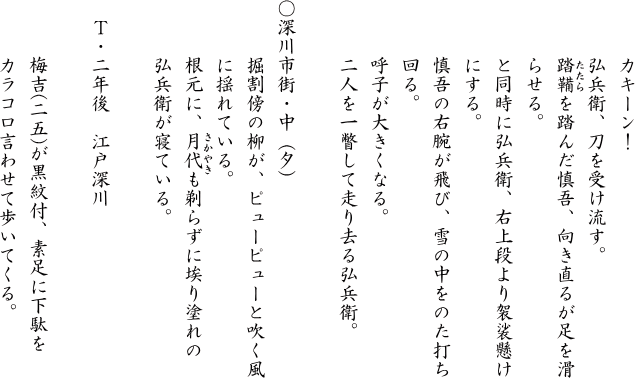 カキーン！
弘兵衛、刀を受け流す。
踏鞴を踏んだ慎吾、向き直るが足を滑
たたら
らせる。
と同時に弘兵衛、右上段より袈裟懸け
にする。
慎吾の右腕が飛び、雪の中をのた打ち
回る。
呼子が大きくなる。
二人を一瞥して走り去る弘兵衛。
〇深川市街・中（夕）
掘割傍の柳が、ピューピューと吹く風
に揺れている。
根元に、月代も剃らずに埃り塗れの
さかやき
弘兵衛が寝ている。
Ｔ・二年後　江戸深川
梅吉（二五）が黒紋付、素足に下駄を
カラコロ言わせて歩いてくる。